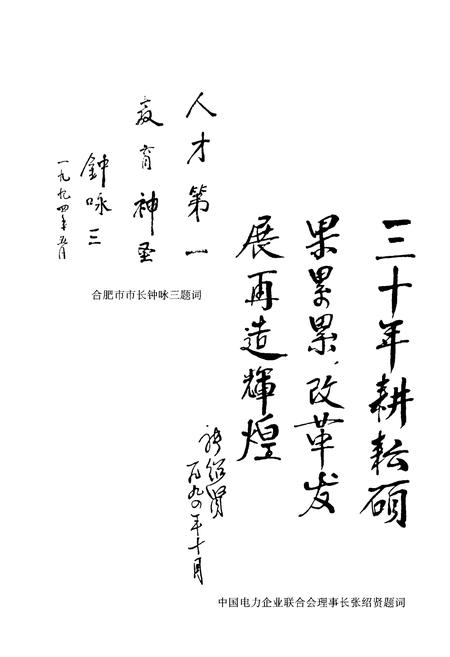 人才第一
教育神圣
鍾咏三
一九九四年五月
合肥市市长钟咏三题词
三十年耕耘硕
果累累，改革发
展再造輝煌
张绍贤
一九九四年十月
中国电力企业联合会理事长张绍贤题词